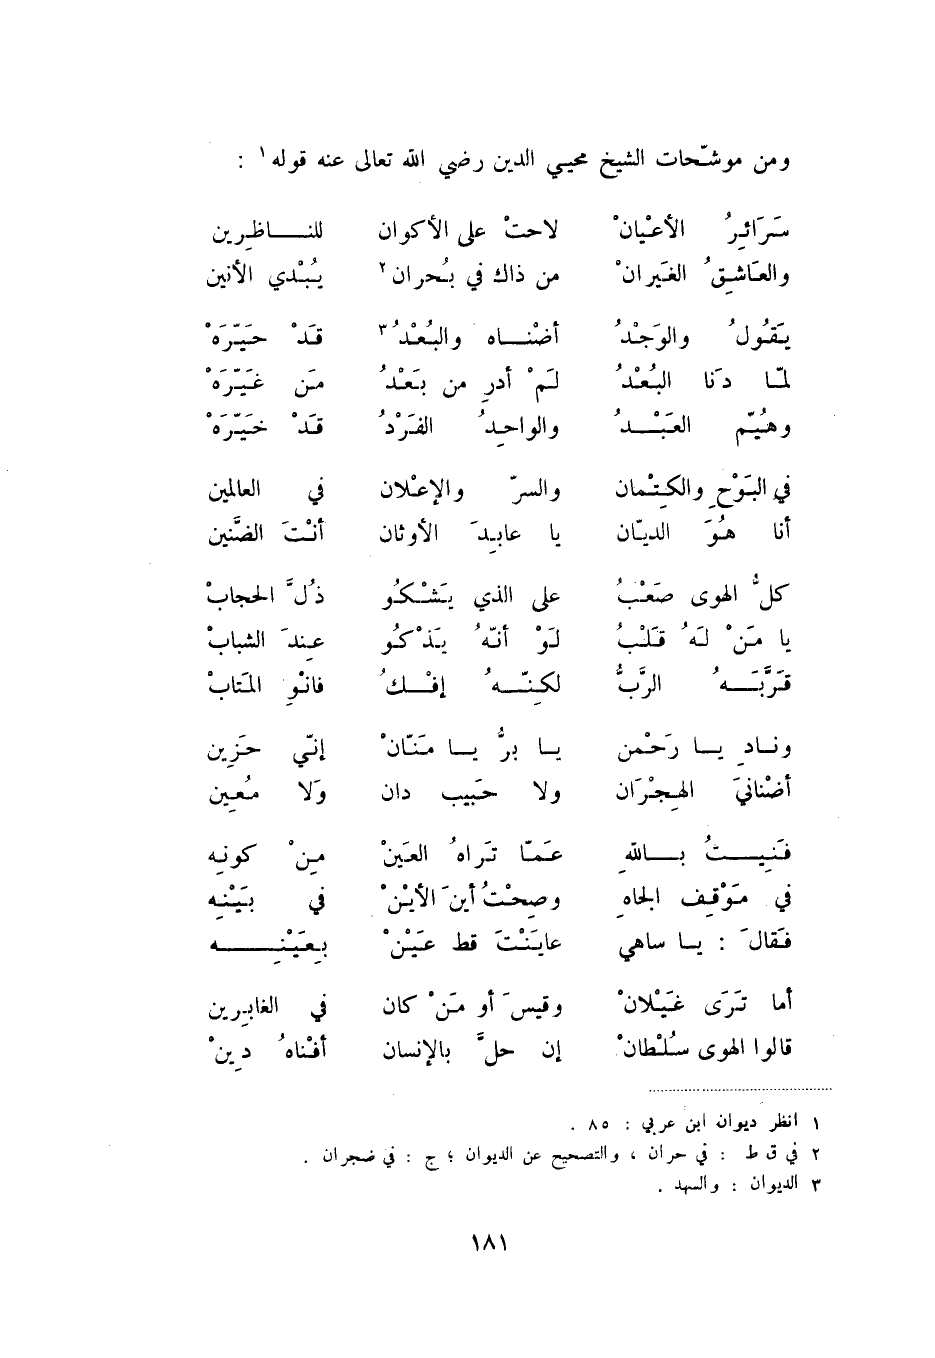 ومن موشّحات الشيخ محيي الدين رضي الله تعالى عنه قوله١ :
سَرَائِرُ الأعْيانْ لاحتْ على الأكوان للنــاظِرين
والعَاشِقُ الغَيرانْ من ذاك في بُحران٢ يُبْدي الأنين
يَقُولُ والوَجْدُ أضْنــاه والبُعْدُ٣ قَدْ حَيّرَهْ
لمّا دَنا البُعْدُ لَمْ أدرِ من بَعْدُ مَن غَيّرَهْ
وهُيّم العَبْــدُ والواحِدُ الفَرْدُ قَدْ خَيّرَهْ
في البَوْحِ والكِتْمان والسرّ والإعْلان في العالمين
أنا هُوَ الديّان يا عابِدَ الأوثان أنْتَ الضَّنين
كلُّ الهوى صَعْبُ على الذي يَشْكُو ذُلَّ الحجابْ
يا مَنْ لَهُ قَلْبُ لَوْ أنّهُ يَذْكُو عِندَ الشبابْ
قَرَّبَــهُ الرَّبُّ لكِنّــهُ إفْــكُ فانْوِ المَتابْ
ونــادِ يــا رَحْمن يــا برُّ يــا مَنّانْ إنّي حَزِين
أضْنانيَ الهِجْرَان ولا حَبيب دان وَلا مُعِين
فَنِيــتُ بــاللهِ عَمّا تَراهُ العَينْ مِنْ كونِه
في مَوْقِفِ الجاهِ وصِحْتُ أينَ الأيْنْ في بَيْنِه
فَقالَ : يــا ساهي عايَنْتَ قط عَيْنْ بِعَيْنِــه
أما تَرَى غَيْلانْ وقيسَ أو مَنْ كان في الغابِرين
قالوا الهوى سُلْطانْ إن حلَّ بالإنسان أفْناهُ دِينْ
١ انظر ديوان ابن عربي : ٨٥ .
٢ في ق ط : في حران ، والتصحيح عن الديوان ؛ ج : في ضجران .
٣ الديوان : والسهد .
١٨١